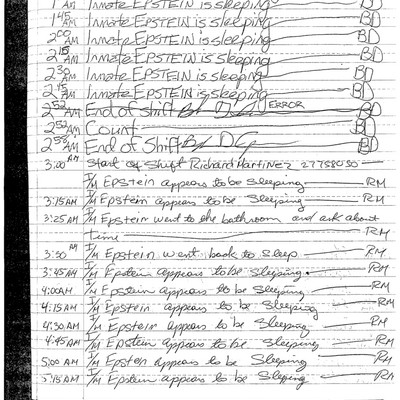 1 AM Inmate EPSTEIN is sleeping BD
1:45 AM Inmate EPSTEIN is sleeping BD
2:00 AM Inmate EPSTEIN is sleeping BD
2:15 AM Inmate EPSTEIN is sleeping BD
2:30 AM Inmate EPSTEIN is sleeping BD
2:45 AM Inmate EPSTEIN is sleeping BD
2:52 AM End of Shift ERROR BD
2:52 AM Count BD
2:56 AM End of Shift BD
3:00 AM Start of Shift Richard Martinez 27758050
I/M Epstein appears to be sleeping RM
3:15 AM I/M Epstein appears to be sleeping RM
3:25 AM I/M Epstein went to the bathroom and ask about
time RM
3:30 AM I/M Epstein went back to sleep RM
3:45 AM I/M Epstein appears to be sleeping. RM
4:00 AM I/M Epstein appears to be sleeping RM
4:15 AM I/M Epstein appears to be sleeping RM
4:30 AM I/M Epstein appears to be sleeping RM
4:45 AM I/M Epstein appears to be sleeping RM
5:00 AM I/M Epstein appears to be sleeping RM
5:15 AM I/M Epstein appears to be sleeping RM